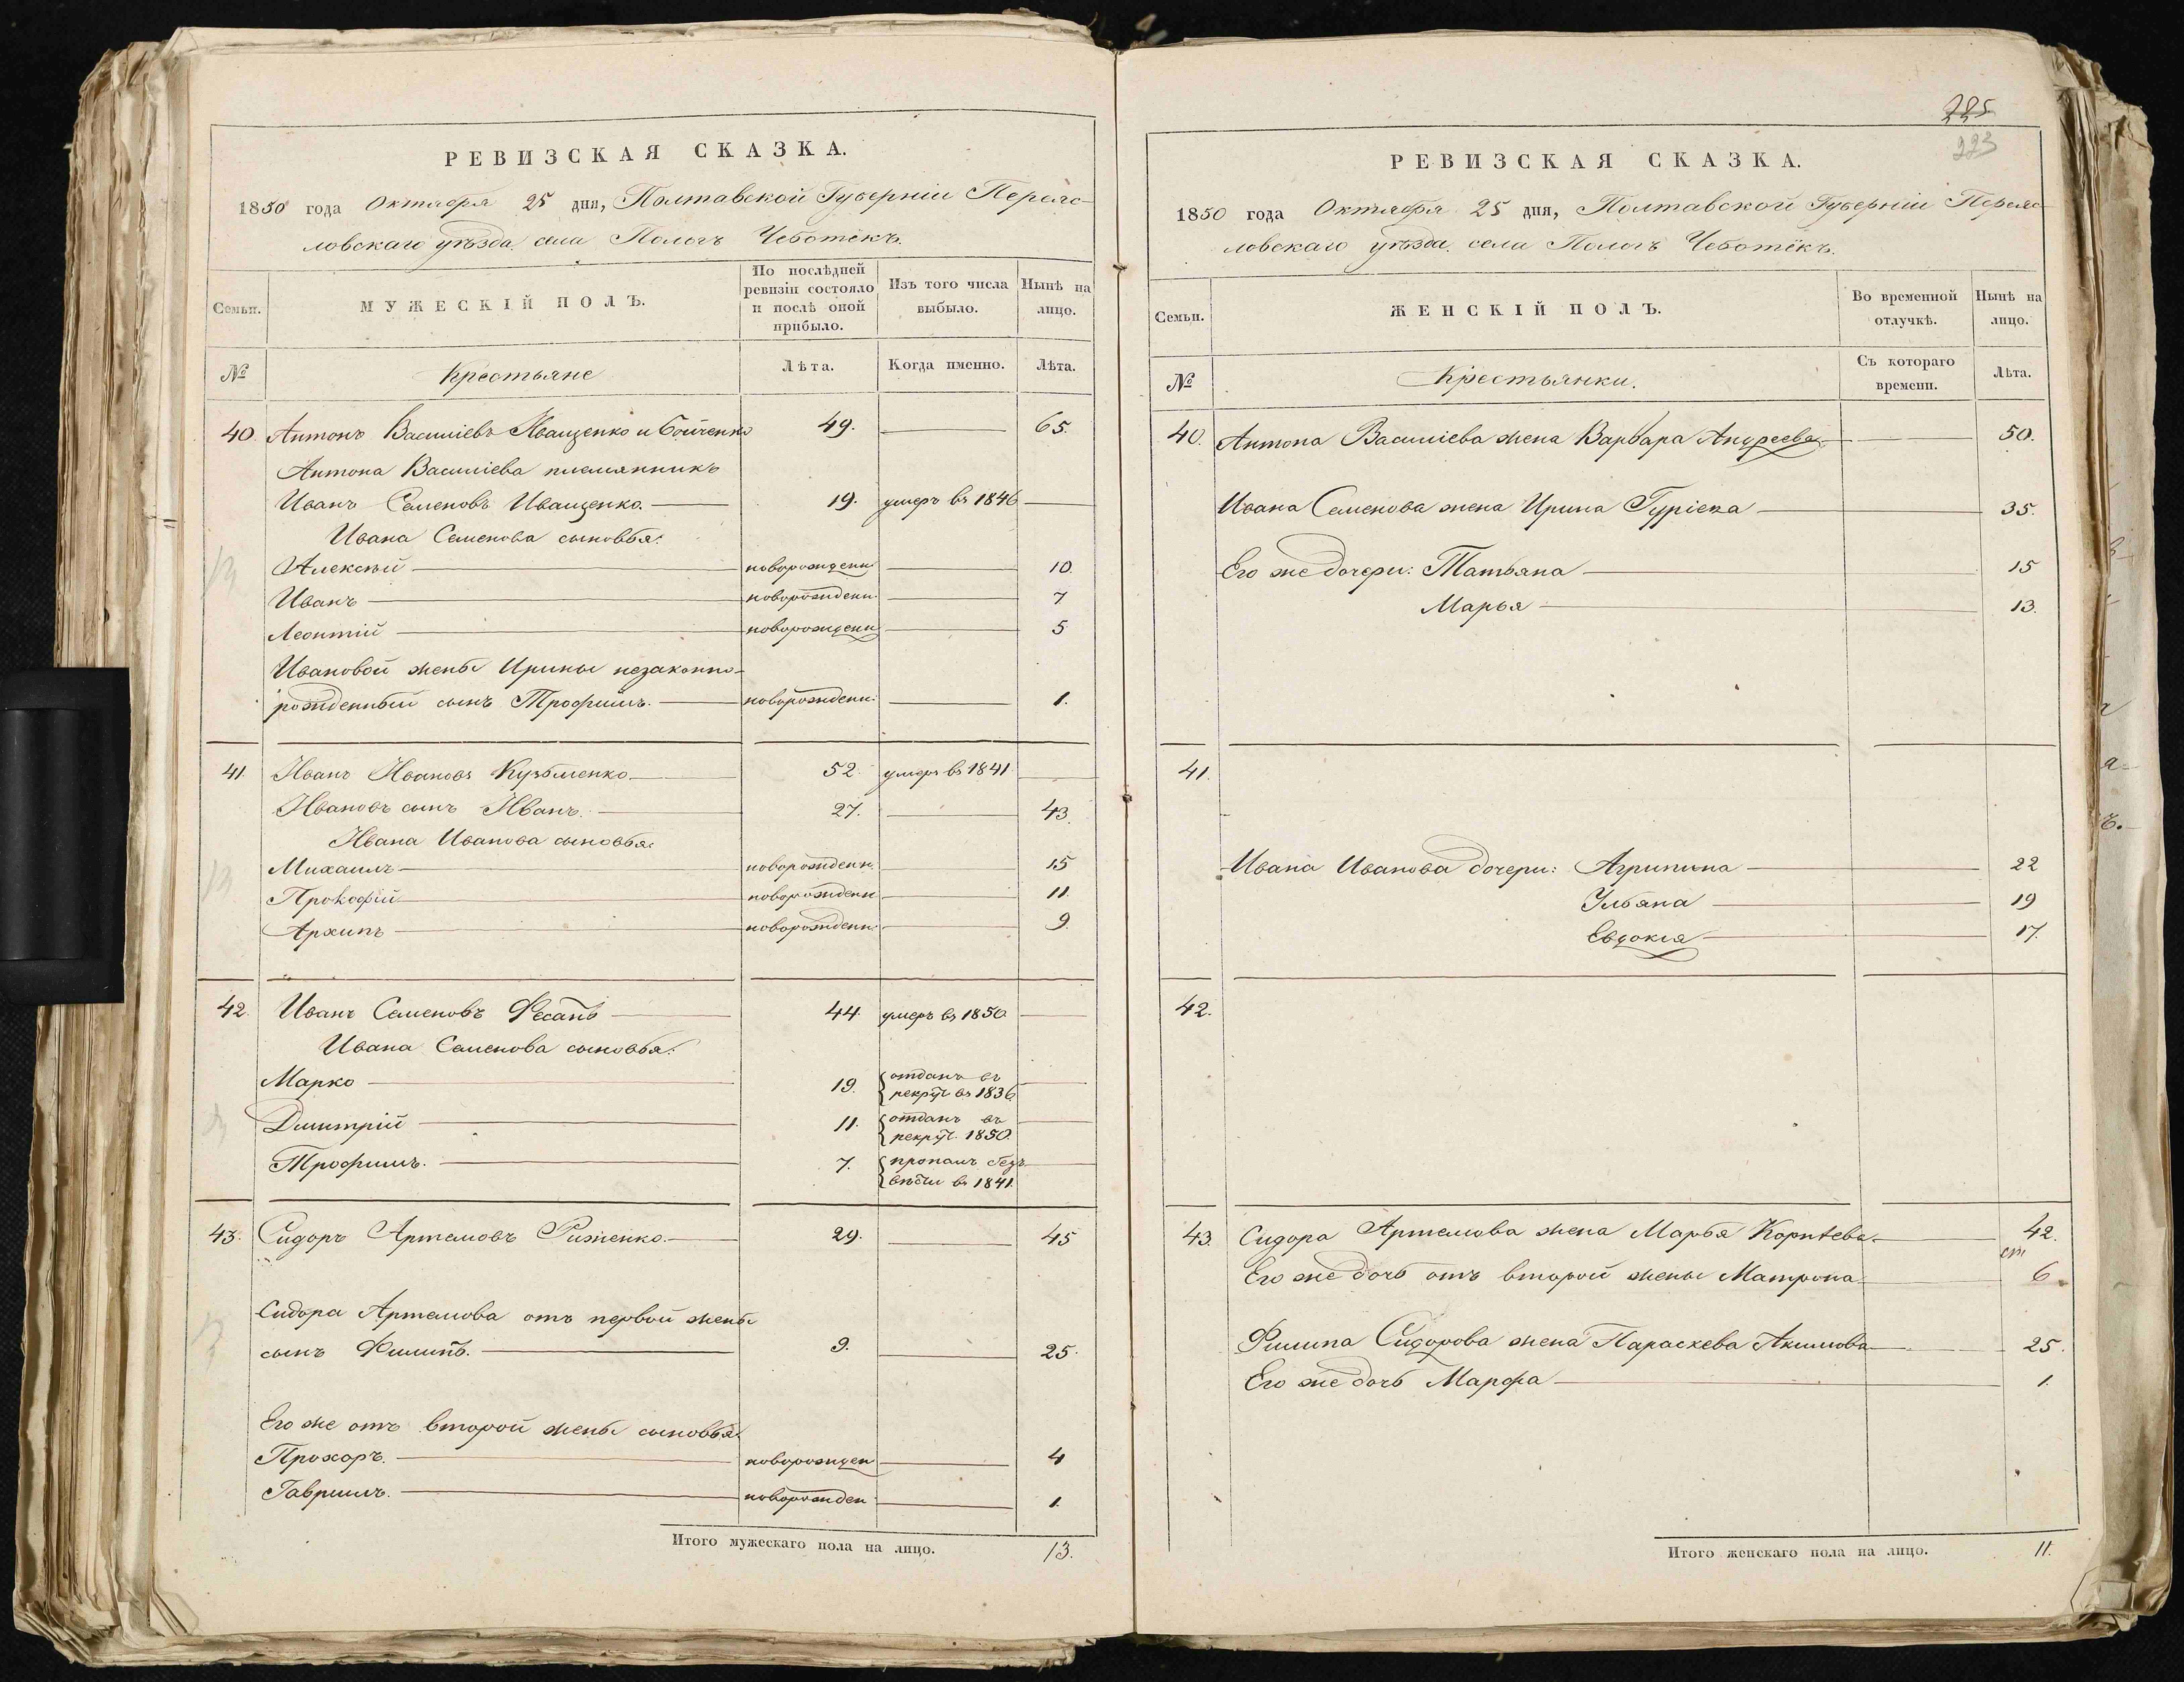 РЕВИЗСКАЯ СКАЗКА.
1850 года Октября 25 дня, Полтавской Губерніи Переяс-
ловскаго уѣзда села Пологъ Чеботёкъ.
Семьи.
МУЖЕСКІЙ ПОЛЪ.
По послѣдней ревизіи состояло и послѣ оной прибыло.
Изъ того числа выбыло.
Нынѣ на лицо.
№
Крестьяне
Лѣта.
Когда именно.
Лѣта.
40. Антонъ Василіевъ Иващенко и Бойченко 49. 65.
Антона Василіева племянникъ
Иванъ Семеновъ Иващенко. 19. умеръ въ 1846
Ивана Семенова сыновья:
Алексѣй новорожденн 10.
Иванъ новорожденн. 7
Леонтій новорожденн 5
Ивановой жены Ирины незаконно-
рожденный сынъ Трофимъ. новорожденн. 1.
41. Иванъ Ивановъ Кузьменко 52. умеръ въ 1841
Ивановъ сынъ Иванъ. 27. 43.
Ивана Иванова сыновья:
Михаилъ новорожденн. 15
Прокофій новорожденн 11.
Архипъ новорожденн. 9.
42. Иванъ Семеновъ Фесанъ 44. умеръ въ 1850
Ивана Семенова сыновья:
Марко 19. отданъ въ
рекрут въ 1836
Дмитрій 11. отданъ въ
рекрут. 1850.
Трофимъ. 7. пропалъ безъ
вѣсти въ 1841.
43. Сидоръ Артемовъ Риженко. 29. 45
Сидора Артемова отъ первой жены
сынъ Филипъ. 9. 25.
Его же отъ второй жены сыновья:
Прохоръ. новорожден 4
Гавриилъ. новорожден 1.
Итого мужескаго пола на лицо. 13.
225
223
РЕВИЗСКАЯ СКАЗКА.
1850 года Октября 25 дня, Полтавской Губерніи Переяс-
ловскаго уѣзда села Пологъ Чеботёкъ.
Семьи.
ЖЕНСКІЙ ПОЛЪ.
Во временной отлучкѣ.
Нынѣ на лицо.
№
Крестьянки.
Съ котораго времени.
Лѣта.
40. Антона Василіева жена Варвара Андреева 50.
Ивана Семенова жена Ирина Гуріева 35.
Его же дочери: Татьяна 15
Марья 13.
41.
Ивана Иванова дочери: Агрипина 22
Ульяна 19
Евдокія 17.
42.
43. Сидора Артемова жена Марья Корнѣева 42.
Его же дочь отъ второй жены Матрона 6
Филипа Сидорова жена Параскева Акимова 25.
Его же дочь Марфа 1.
Итого женскаго пола на лицо. 11.